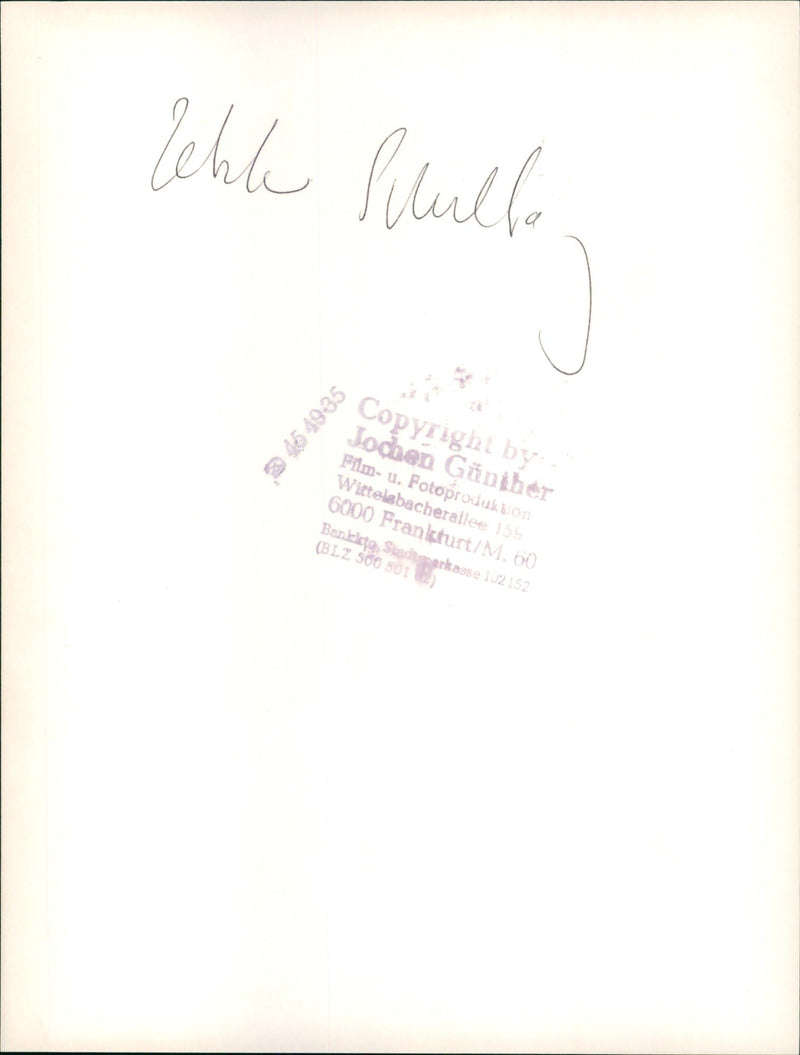 Letzter Schultag
45 49 35
Copyright by
Jochen Günther
Film- u. Fotoproduktion
Wittelsbacherallee 159
6000 Frankfurt/M. 60
Bankkto. Stadtsparkasse 102152
(BLZ 500 501 02)